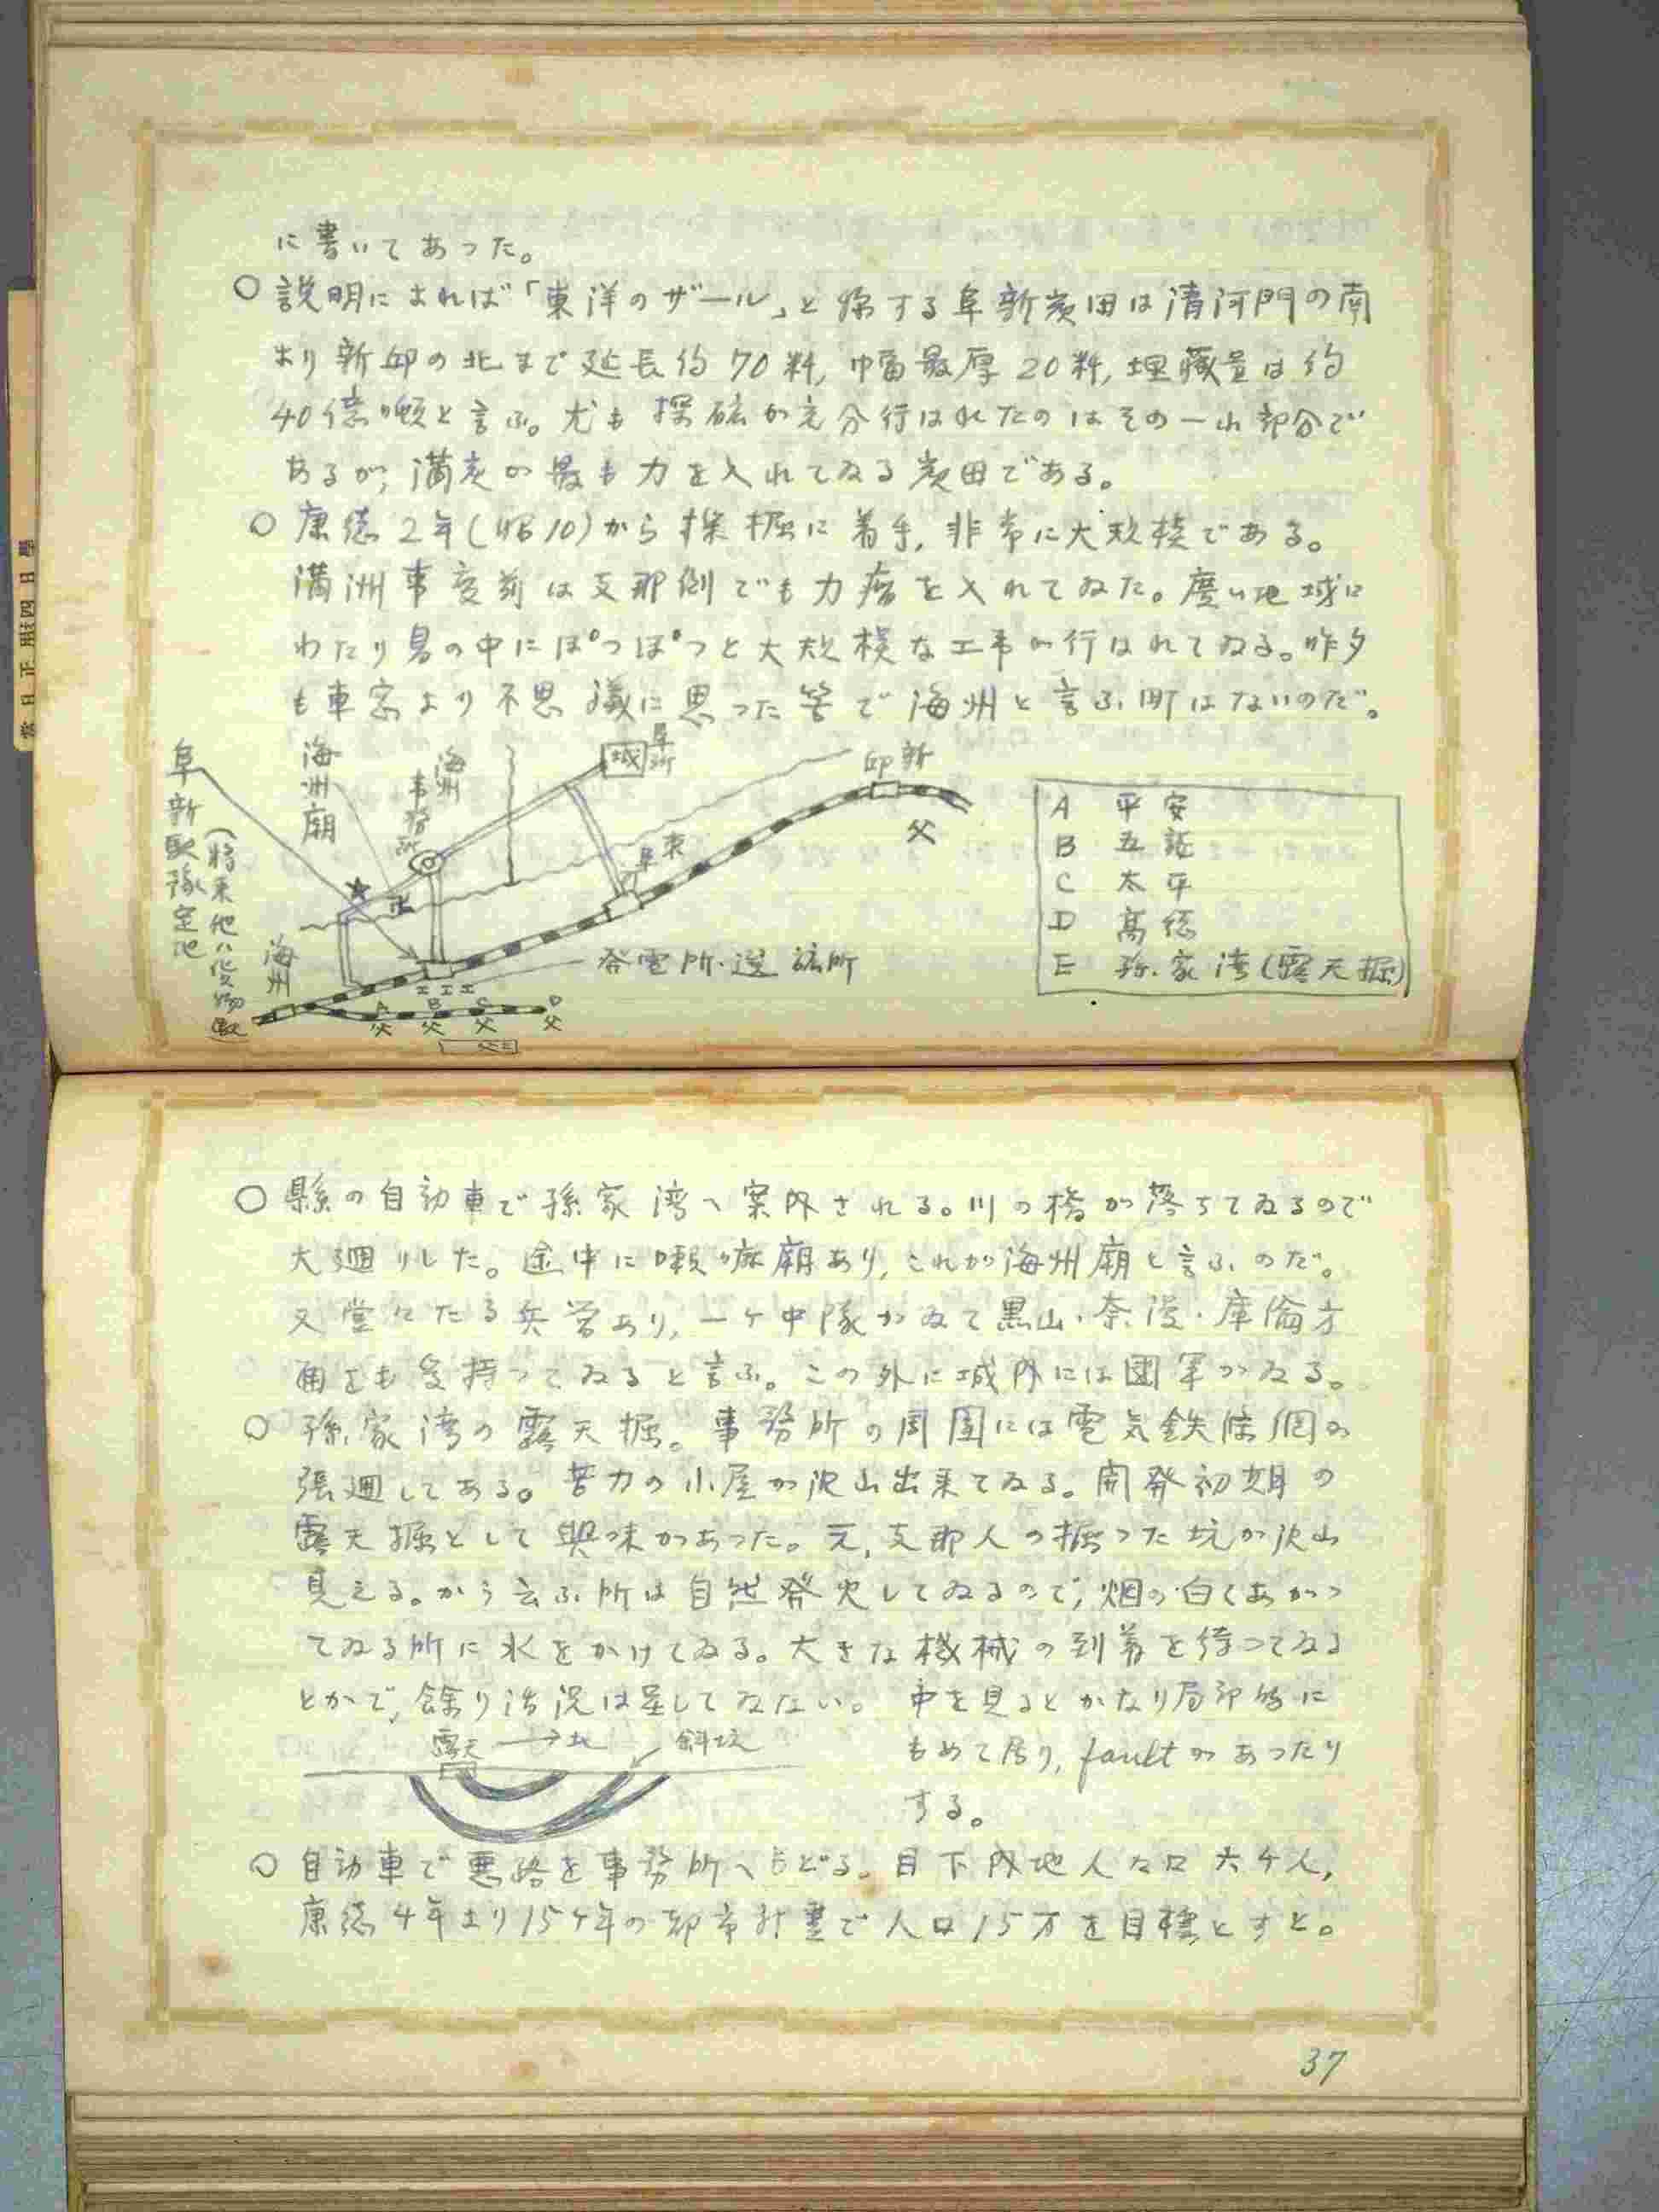 に書いてあった。
○ 説明によれば「東洋のザール」と称する阜新炭田は清河門の南
より新邱の北まで延長約70粁, 幅最厚20粁, 埋蔵量は約
40億噸と言ふ。尤も探砿が充分行はれたのはその一小部分で
あるが, 満炭が最も力を入れてゐる炭田である。
○ 康徳2年(昭10)から採掘に着手, 非常に大規模である。
満洲事変前は支那側でも力瘤を入れてゐた。広い地域に
わたり畧の中にぽつぽつと大規模な工事が行はれてゐる。昨夕
も車窓より不思議に思った筈で海州と言ふ町はないのだ。
阜新駅豫定地
(将来他ハ貨物駅)
海洲廟
海州事務所
城
阜新
新邱
東阜
海州
発電所・選砿所
A B C D
E
A 平安
B 五龍
C 太平
D 高徳
E 孫家湾(露天掘)
○ 縣の自動車で孫家湾へ案内される。川の橋が落ちてゐるので
大廻りした。途中に喇嘛廟あり, これが海州廟と言ふのだ。
又堂々たる兵営あり, 一ヶ中隊がゐて黒山・奈漫・庫倫方
面をも受持ってゐると言ふ。この外に城内には國軍がゐる。
○ 孫家湾の露天掘。事務所の周囲には電気鉄條網が
張廻してある。苦力の小屋が沢山出来てゐる。開発初期の
露天掘として興味があった。元, 支那人の掘った坑が沢山
見える。かう云ふ所は自然発火してゐるので, 烟が白くあがっ
てゐる所に水をかけてゐる。大きな機械の到着を待ってゐる
とかで, 餘り活況は呈してゐない。
中を見るとかなり局部的に
もめて居り, faultがあったり
する。
露天 →北 斜坑
○ 自動車で悪路を事務所へもどる。目下内地人人口六千人,
康徳4年より15ヶ年の都市計畫で人口15万を目標とすと。
37